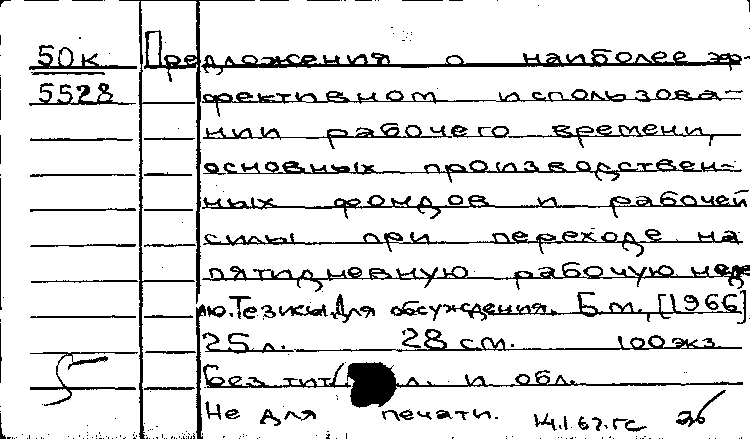 50к Предложения о наиболее эф-
5528 фективном использова=
нии рабочего времени,
основных производствен=
ных фондов и рабочей
силы при переходе на
пятидневную рабочую неде
лю. Тезисы. Для обсуждения. Б.м., [1966]
25 л. 28 см. 100 экз.
Без тит. л. и обл.
Не для печати. 14.I.67. ГС